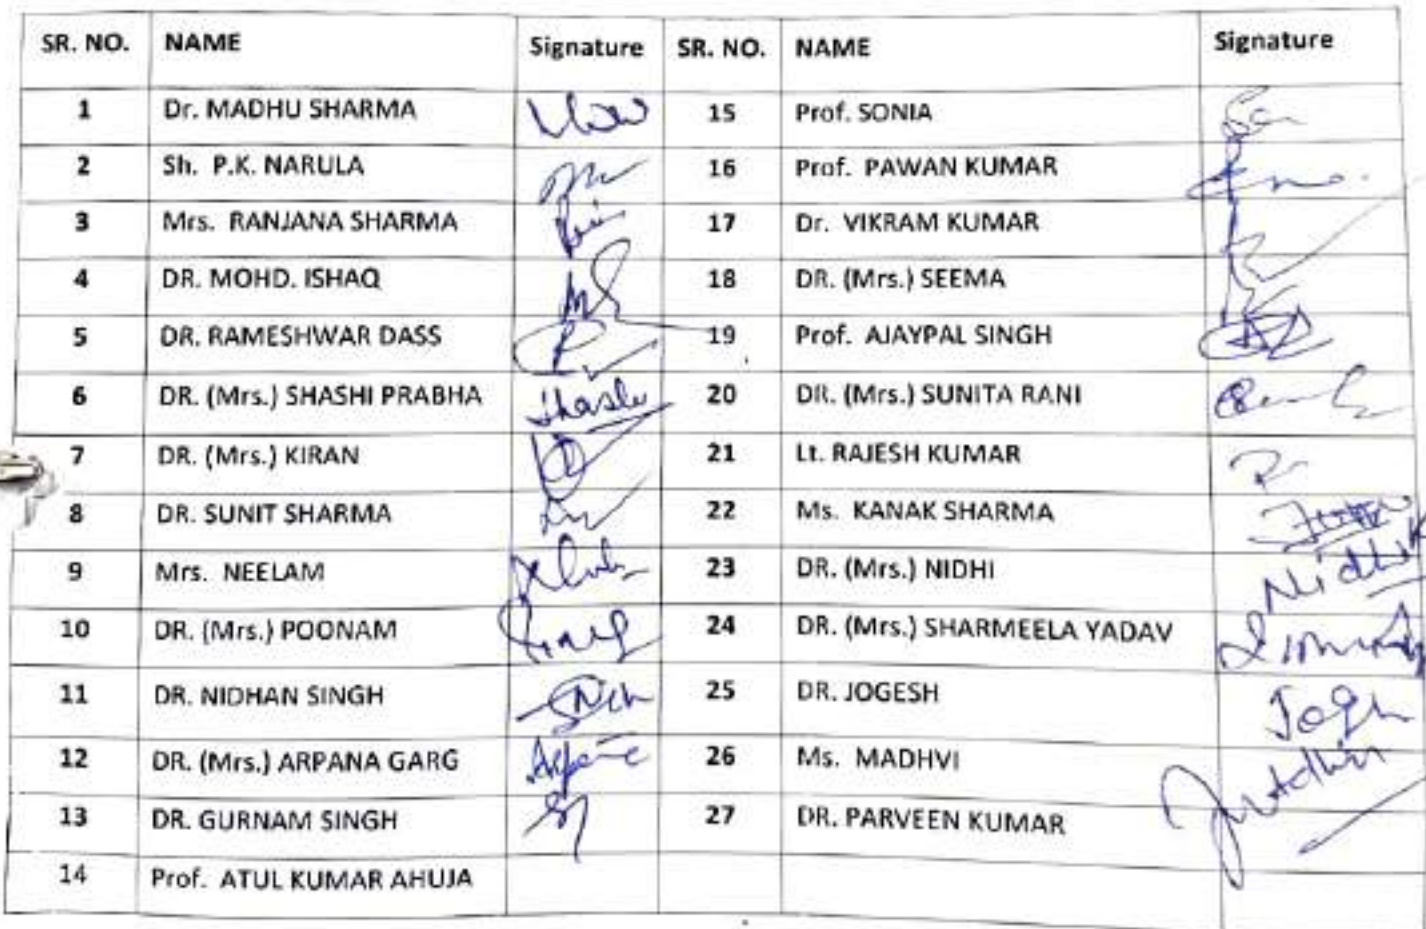 SR. NO. NAME Signature SR. NO. NAME Signature
1 Dr. MADHU SHARMA 15 Prof. SONIA
2 Sh. P.K. NARULA 16 Prof. PAWAN KUMAR
3 Mrs. RANJANA SHARMA 17 Dr. VIKRAM KUMAR
4 DR. MOHD. ISHAQ 18 DR. (Mrs.) SEEMA
5 DR. RAMESHWAR DASS 19 Prof. AJAYPAL SINGH
6 DR. (Mrs.) SHASHI PRABHA 20 DR. (Mrs.) SUNITA RANI
7 DR. (Mrs.) KIRAN 21 Lt. RAJESH KUMAR
8 DR. SUNIT SHARMA 22 Ms. KANAK SHARMA
9 Mrs. NEELAM 23 DR. (Mrs.) NIDHI
10 DR. (Mrs.) POONAM 24 DR. (Mrs.) SHARMEELA YADAV
11 DR. NIDHAN SINGH 25 DR. JOGESH
12 DR. (Mrs.) ARPANA GARG 26 Ms. MADHVI
13 DR. GURNAM SINGH 27 DR. PARVEEN KUMAR
14 Prof. ATUL KUMAR AHUJA